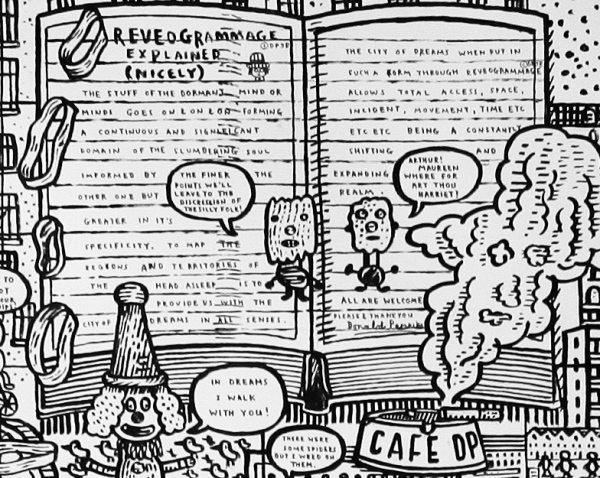 REVEOGRAMMAGE
EXPLAINED
(NICELY)
THE STUFF OF THE DORMANT MIND OR
MINDS GOES ON LON LON FORMING
A CONTINUOUS AND SIGNIFIGANT
DOMAIN OF THE SLUMBERING SOUL
IMFORMED BY THE
OTHER ONE BUT
GREATER IN IT'S
SPECIFICITY. TO MAP THE
REGIONS AND TERRITORIES OF
THE HEAD ASLEEP IS TO
PROVIDE US WITH THE
CITY OF DREAMS IN ALL SENSES.
THE FINER
POINTS WE'LL
LEAVE TO THE
DISCRESSION OF
THE SILLY FOLK!
THE CITY OF DREAMS WHEN PUT IN
SUCH A FORM THROUGH REVEOGRAMMAGE
ALLOWS TOTAL ACCESS, SPACE,
INCIDENT, MOVEMENT, TIME ETC
ETC ETC BEING A CONSTANTLY
SHIFTING AND
EXPANDING
REALM.
ARTHUR!
MAUREEN
WHERE FOR
ART THOU
HARRIET!
ALL ARE WELCOME
PLEASE & THANK YOU
Donald
TO
OT
IN DREAMS
I WALK
WITH YOU!
THERE WERE
SOME SPIDERS
BUT I WEED ON
THEM.
CAFÉ DP